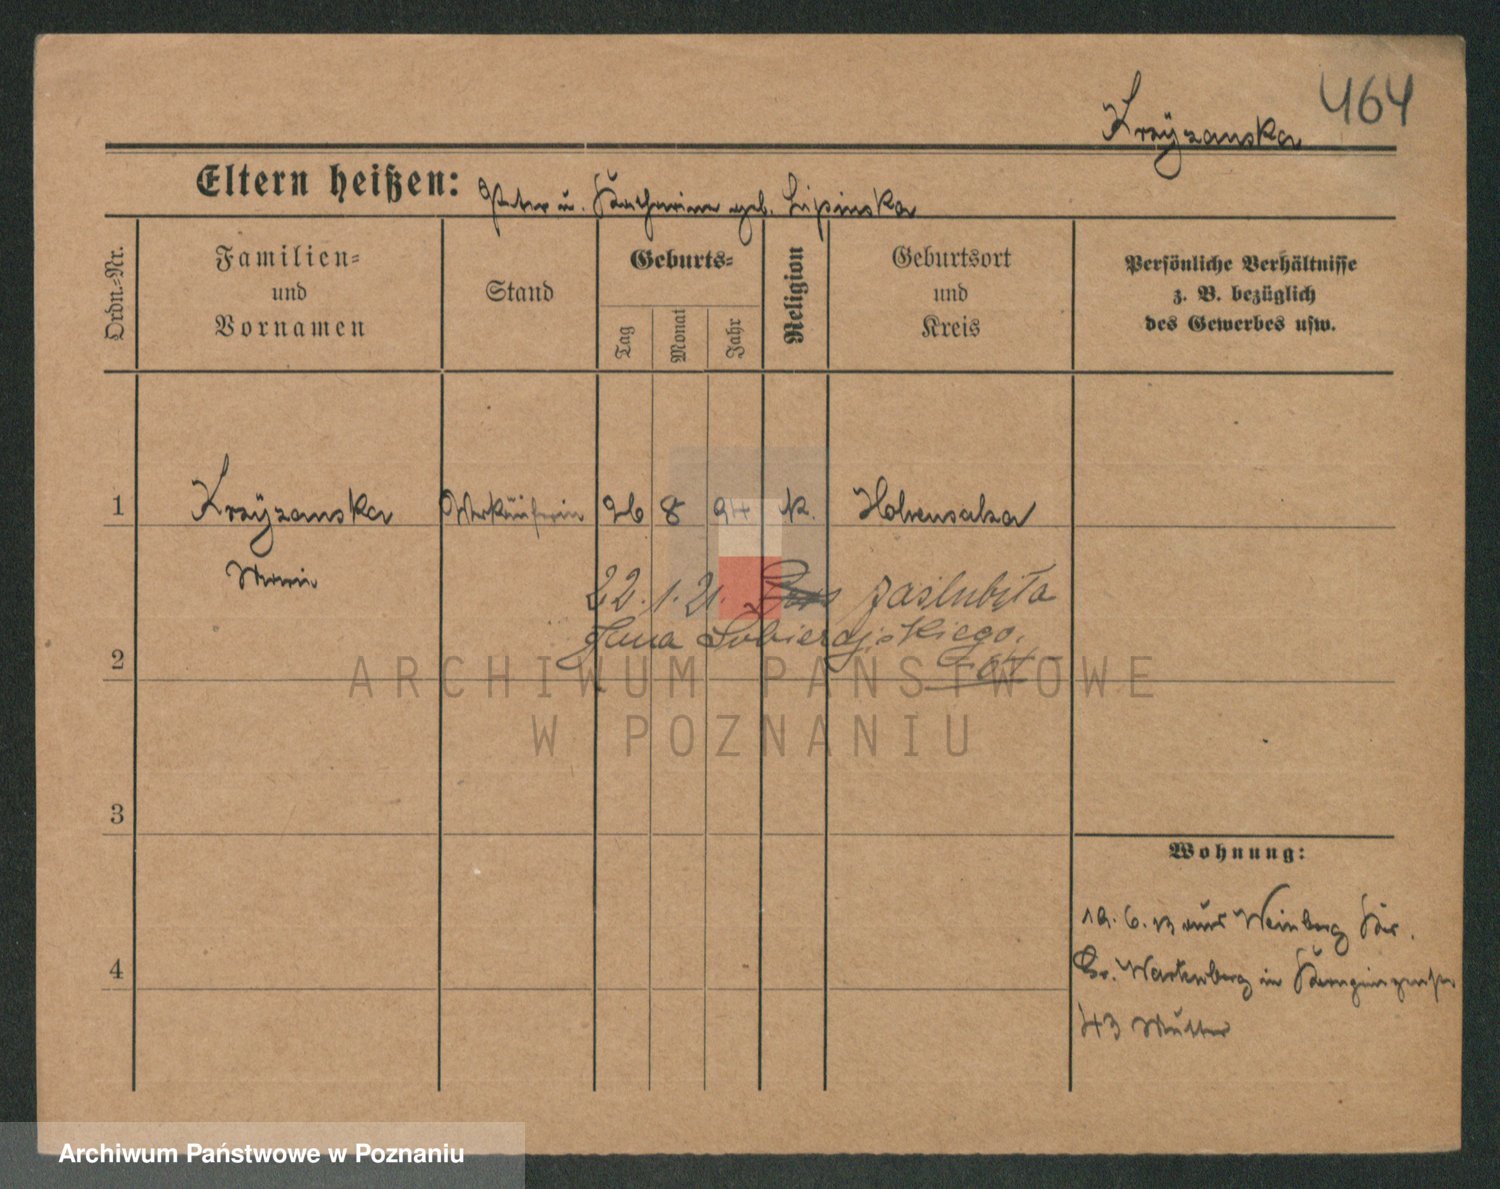 464
Krzÿzanska
Eltern heißen: Peter u. Katharina geb. Lipinska
Ordn.-Nr.
Familien-
und
Vornamen
Stand
Geburts-
Tag
Monat
Jahr
Religion
Geburtsort
und
Kreis
Persönliche Verhältnisse
z. B. bezüglich
des Gewerbes usw.
1 Krzÿzanska Verkäuferin 26 8 94 k. Hohensalza
Maria
22.1.21. zaślubiła
Jana Sobierajskiego.
2
ARCHIWUM PAŃSTWOWE
W POZNANIU
3
Wohnung:
19. 6. 13 aus Weinberg Kr.
4
Gr. Wartenberg in
43 Mutter
Archiwum Państwowe w Poznaniu